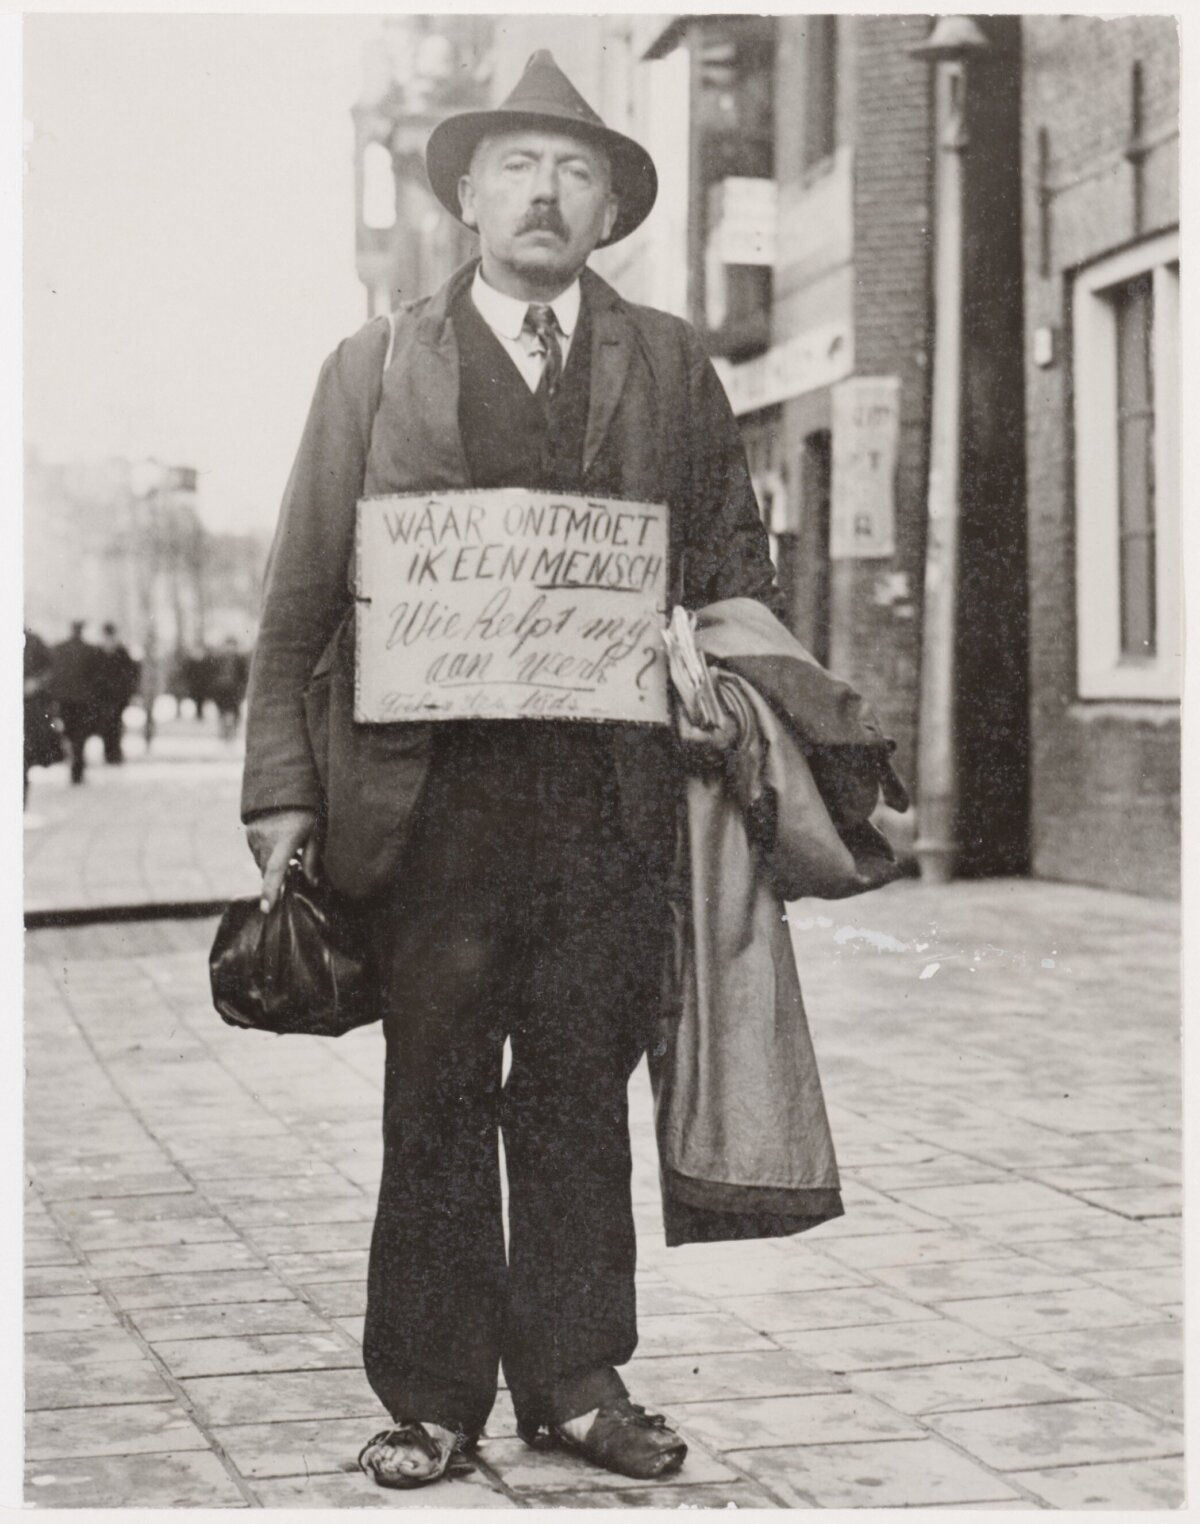 WAAR ONTMOET
IK EEN MENSCH
Wie helpt mij
aan werk?